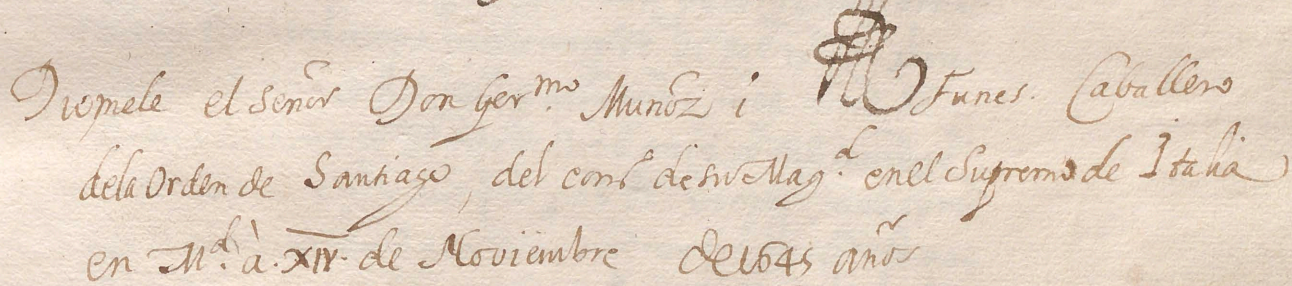 Diomele el Señor Don Ger.mo Muñoz i Funes. Caballero
dela Orden de Santiago, del cons.o de su Mag.d en el Supremo de Italia
en M.d à .XIV. de Noviembre de 1645 años